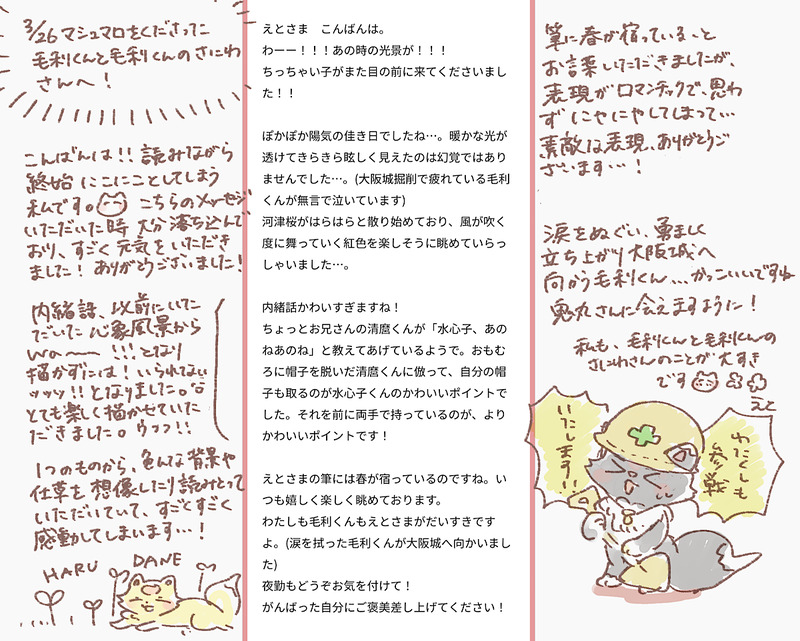 3/26 マシュマロをくださった
毛利くんと毛利くんのさにわ
さんへ!
こんばんは!! 読みながら
終始 にこにことしてしまう
私です。
こちらのメッセージ
いただいた時 大分 落ち込んで
おり、すごく 元気を いただき
ました! ありがとうございました!
内緒話、以前にいた
だいた 心象風景から
wa〜〜 !!! となり
描かずには! いられない
ッッッ!! となりました。
とても楽しく描かせていた
だきました。ウッッ!!
1つのものから、色んな背景や
仕草を想像したり読みとって
いただいていて、すごくすごく
感動してしまいます…!
HARU DANE
えとさま こんばんは。
わーー!!!あの時の光景が!!!
ちっちゃい子がまた目の前に来てくださいまし
た!!
ぽかぽか陽気の佳き日でしたね…。暖かな光が
透けてきらきら眩しく見えたのは幻覚ではあり
ませんでした…。(大阪城掘削で疲れている毛利
くんが無言で泣いています)
河津桜がはらはらと散り始めており、風が吹く
度に舞っていく紅色を楽しそうに眺めていらっ
しゃいました…。
内緒話かわいすぎますね!
ちょっとお兄さんの清麿くんが「水心子、あの
ねあのね」と教えてあげているようで。おもむ
ろに帽子を脱いだ清麿くんに倣って、自分の帽
子も取るのが水心子くんのかわいいポイントで
した。それを前に両手で持っているのが、より
かわいいポイントです!
えとさまの筆には春が宿っているのですね。い
つも嬉しく楽しく眺めております。
わたしも毛利くんもえとさまがだいすきです
よ。(涙を拭った毛利くんが大阪城へ向かいまし
た)
夜勤もどうぞお気を付けて!
がんばった自分にご褒美差し上げてください!
筆に春が宿っていること
お言葉いただきましたが、
表現がロマンチックで、思わ
ずにやにやしてしまって…
素敵な表現、ありがとうご
ざいます…!
涙をぬぐい、勇ましく
立ち上がり大阪城へ
向かう毛利くん…かっこいいですね
鬼丸さんに会えますように!
私も、毛利くんと毛利くんの
さにわさんのことが大すき
です
えと
わたくしも
参戦
いたします!!